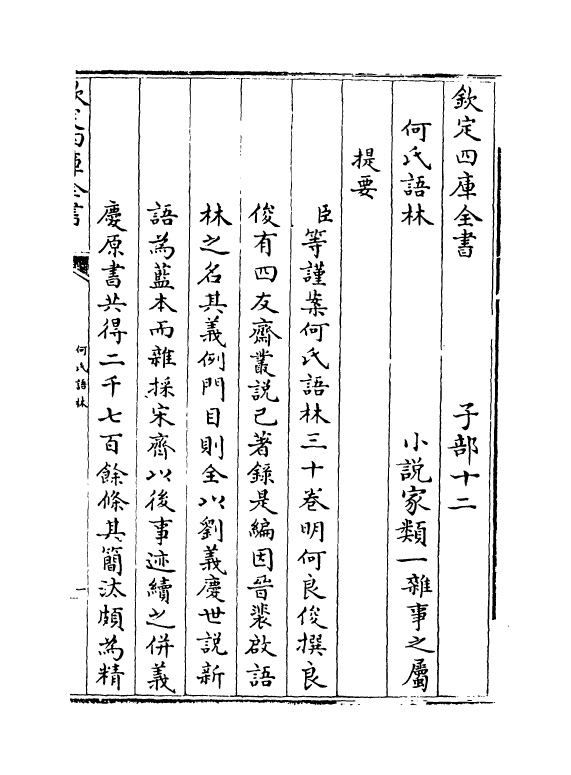 欽定四庫全書　子部十二
何氏語林　小説家類一雜事之屬
提要
臣等謹案何氏語林三十卷明何良俊撰良
俊有四友齋叢説已著錄是編因晉裴啟語
林之名其義例門目則全以劉義慶世説新
語為藍本而雜採宋齊以後事迹續之併義
慶原書共得二千七百餘條其簡汰頗為精
欽定四庫全書
何氏語林
一